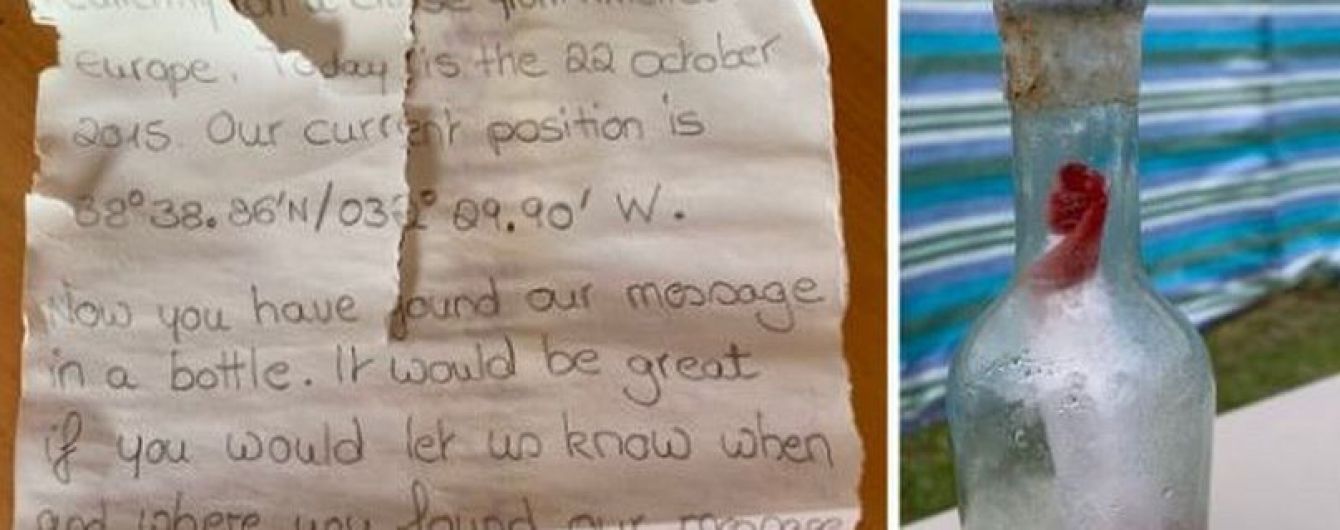 Europe. Today is the 22 october
2015. Our current position is
38°38.86'N/032° 29.90' W.
Now you have found our message
in a bottle. It would be great
if you would let us know when
and where you found our message